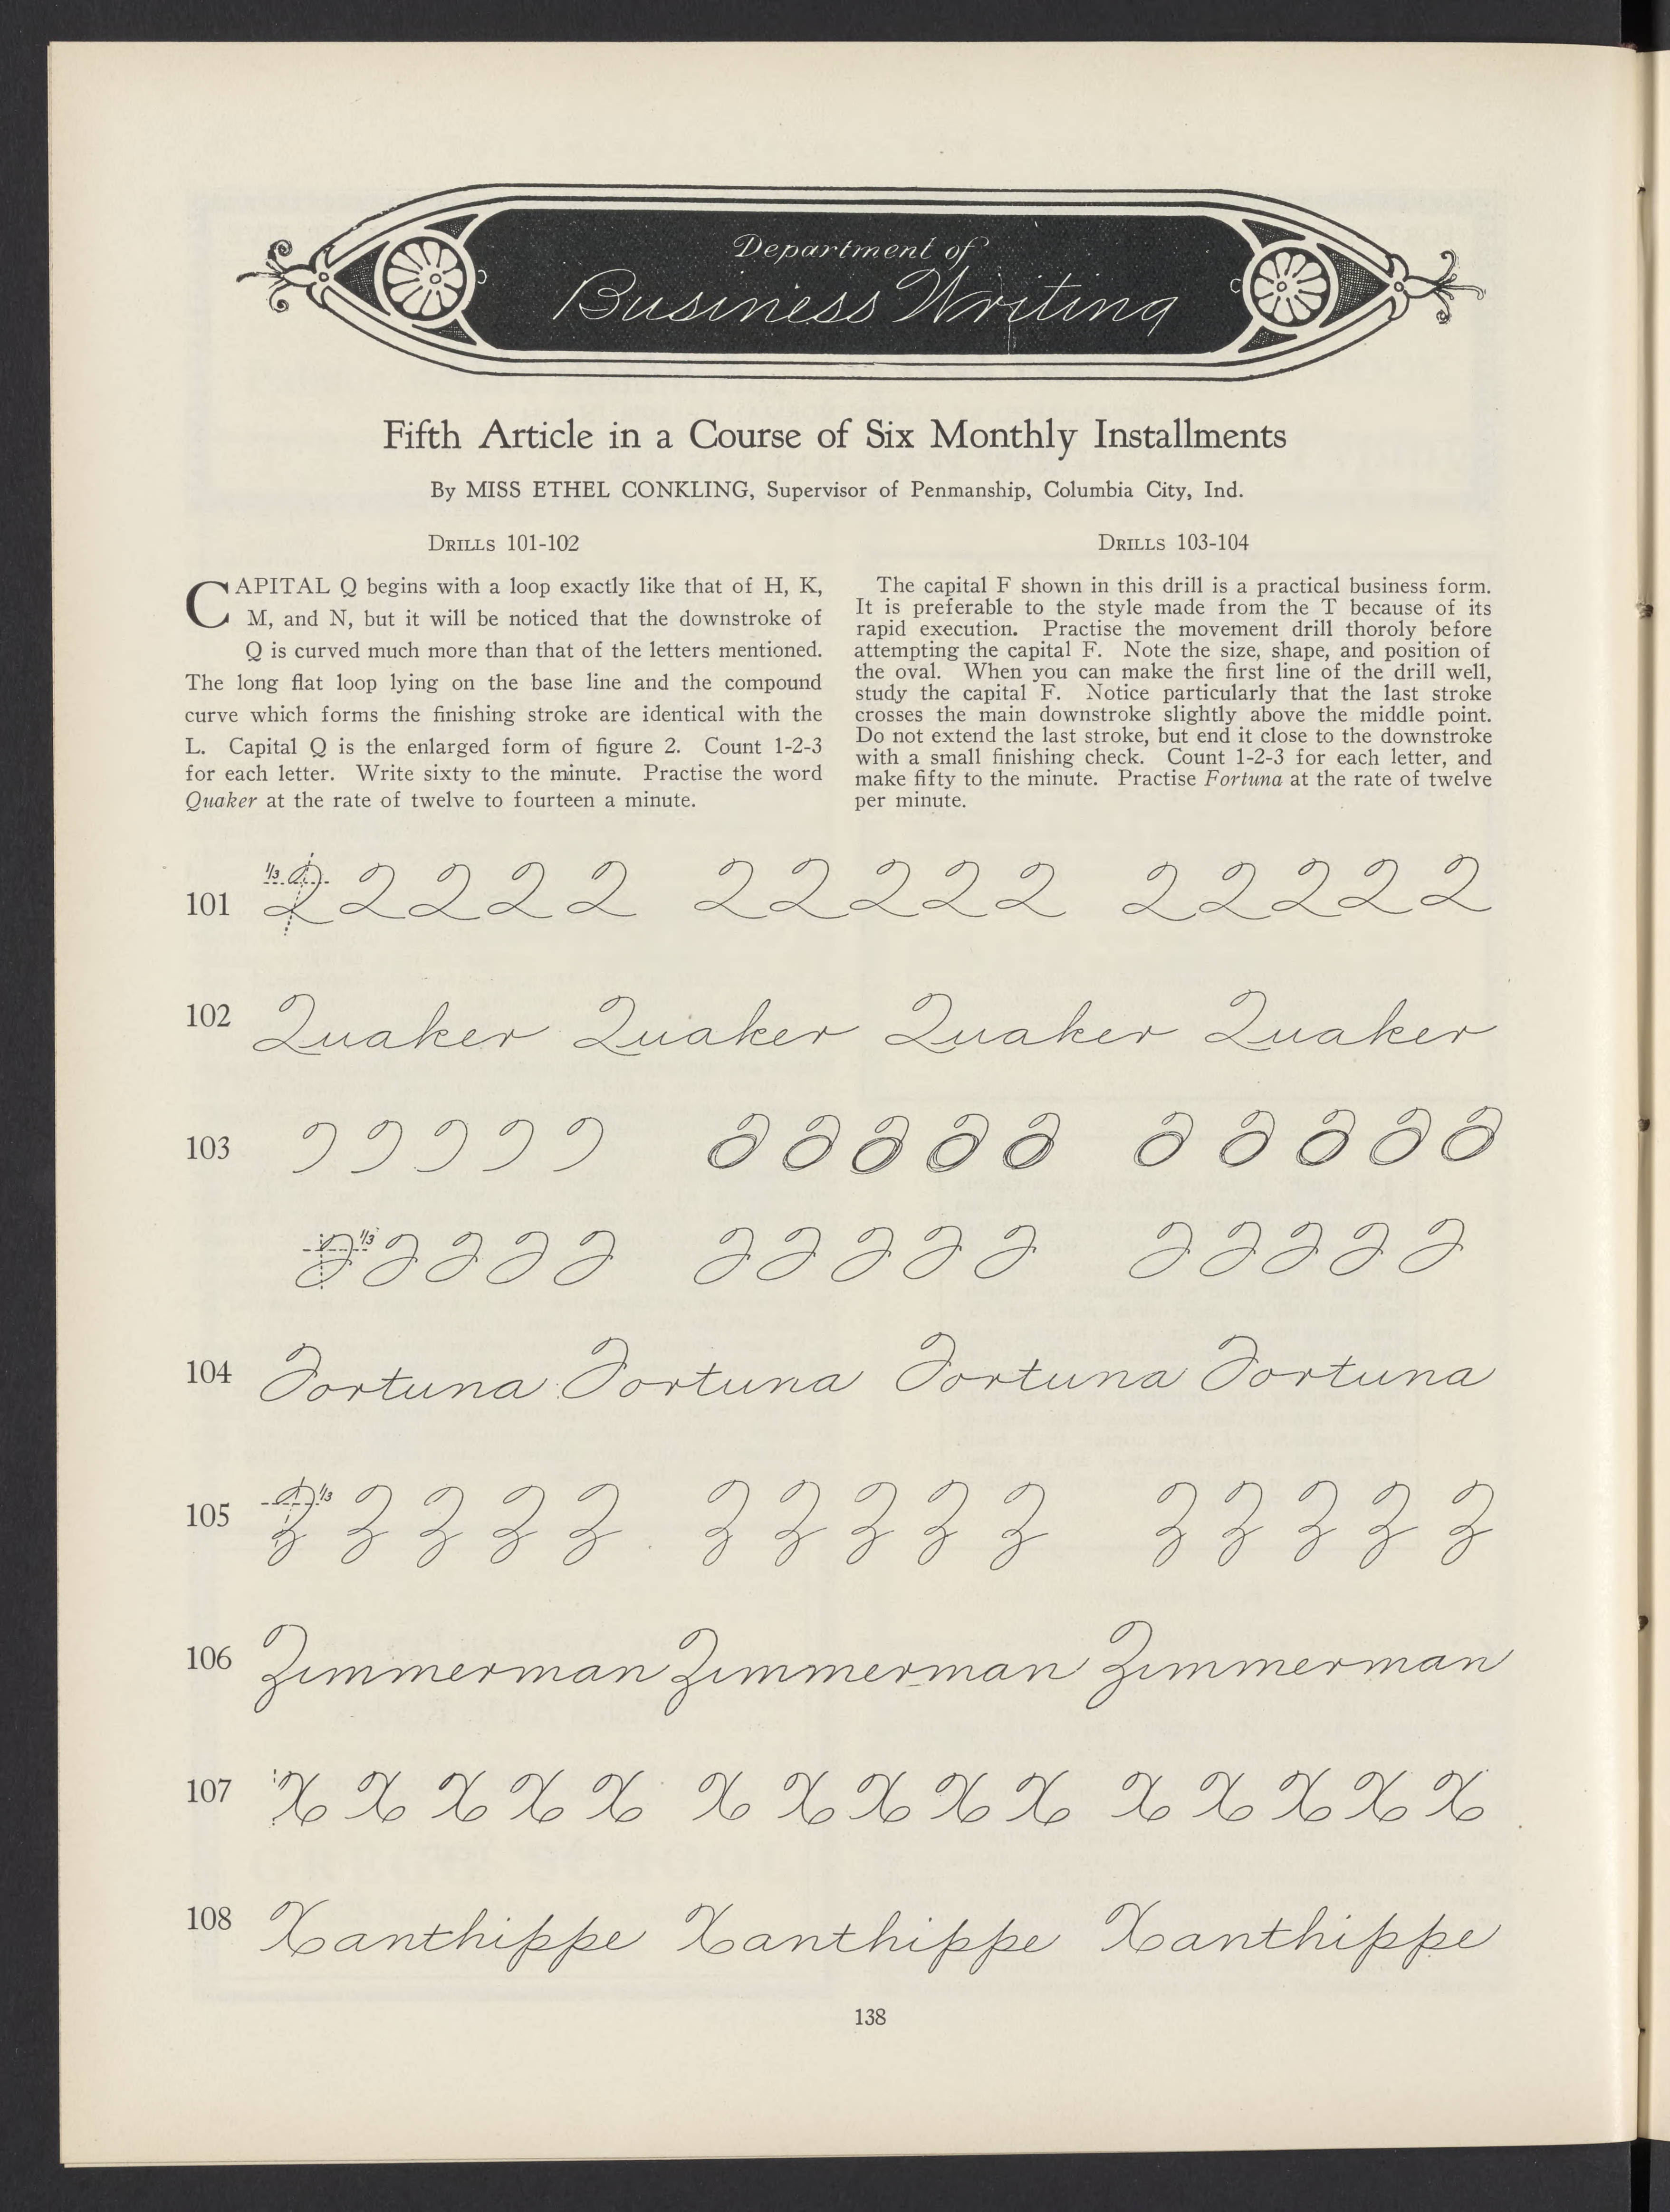 Department of
Business Writing
Fifth Article in a Course of Six Monthly Installments
By MISS ETHEL CONKLING, Supervisor of Penmanship, Columbia City, Ind.
DRILLS 101-102
CAPITAL Q begins with a loop exactly like that of H, K,
M, and N, but it will be noticed that the downstroke of
Q is curved much more than that of the letters mentioned.
The long flat loop lying on the base line and the compound
curve which forms the finishing stroke are identical with the
L. Capital Q is the enlarged form of figure 2. Count 1-2-3
for each letter. Write sixty to the minute. Practise the word
Quaker at the rate of twelve to fourteen a minute.
DRILLS 103-104
The capital F shown in this drill is a practical business form.
It is preferable to the style made from the T because of its
rapid execution. Practise the movement drill thoroly before
attempting the capital F. Note the size, shape, and position of
the oval. When you can make the first line of the drill well,
study the capital F. Notice particularly that the last stroke
crosses the main downstroke slightly above the middle point.
Do not extend the last stroke, but end it close to the downstroke
with a small finishing check. Count 1-2-3 for each letter, and
make fifty to the minute. Practise Fortuna at the rate of twelve
per minute.
101 1/3 Q Q Q Q Q Q Q Q Q Q Q Q Q Q Q
102 Quaker Quaker Quaker Quaker
103
F 1/3 F F F F F F F F F F F F F F
104 Fortuna Fortuna Fortuna Fortuna
105 Z 1/3 Z Z Z Z Z Z Z Z Z Z Z Z Z Z
106 Zimmerman Zimmerman Zimmerman
107 X X X X X X X X X X X X X X X
108 Xanthippe Xanthippe Xanthippe
138